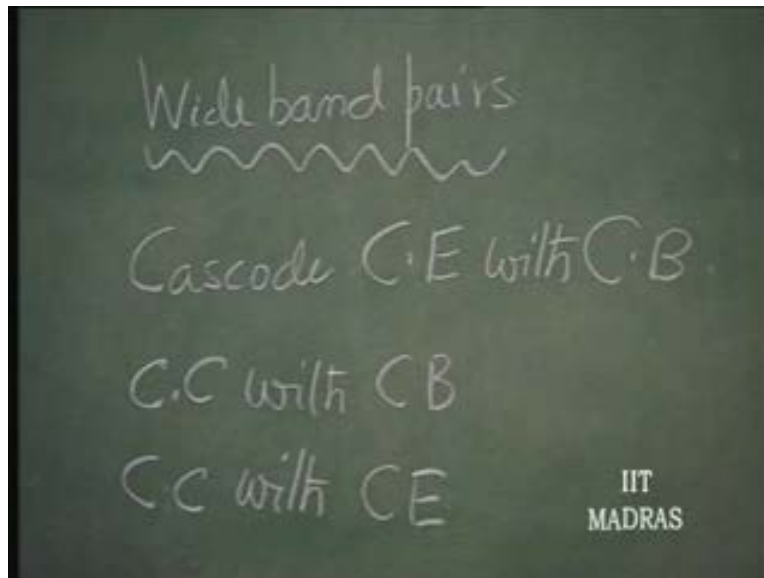 Wide band pairs
Cascode C.E with C.B.
C.C with CB
C.C with CE
IIT
MADRAS